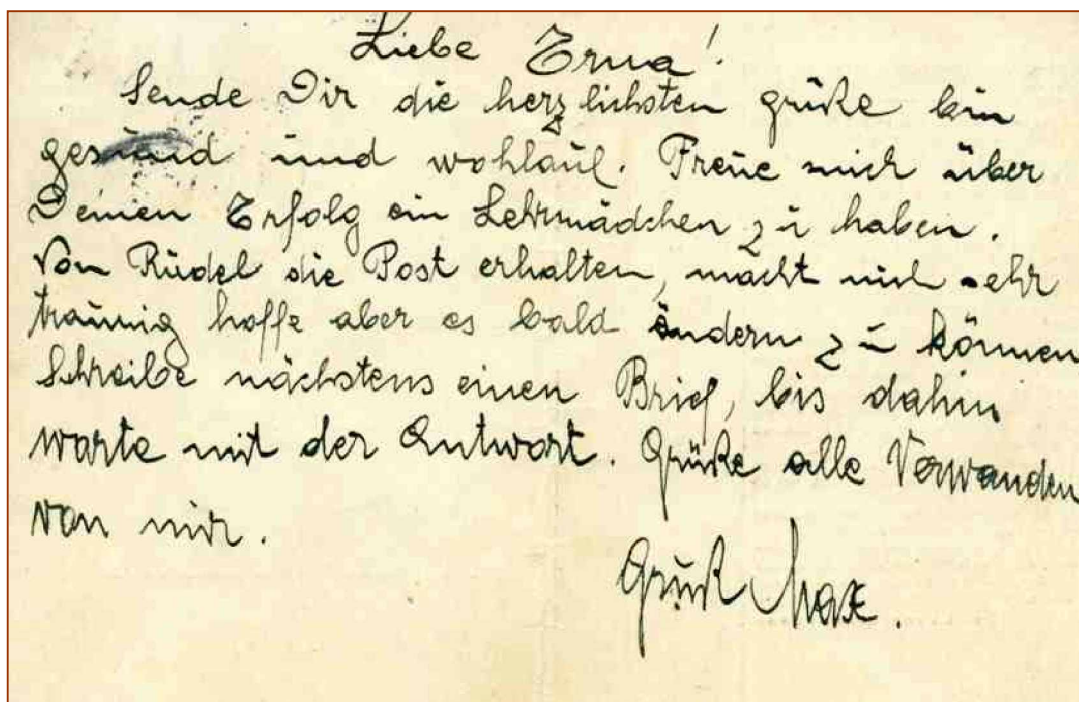 Liebe Erna!
Sende Dir die herzlichsten grüße bin
gesund und wohlauf. Freue mich über
Deinen Erfolg ein Lehrmädchen zu haben.
Von Rudel die Post erhalten, macht mich sehr
traurig hoffe aber es bald ändern zu können
Schreibe nächstens einen Brief, bis dahin
warte mit der Antwort. Grüße alle Verwanden
von mir.
Gruß Max.